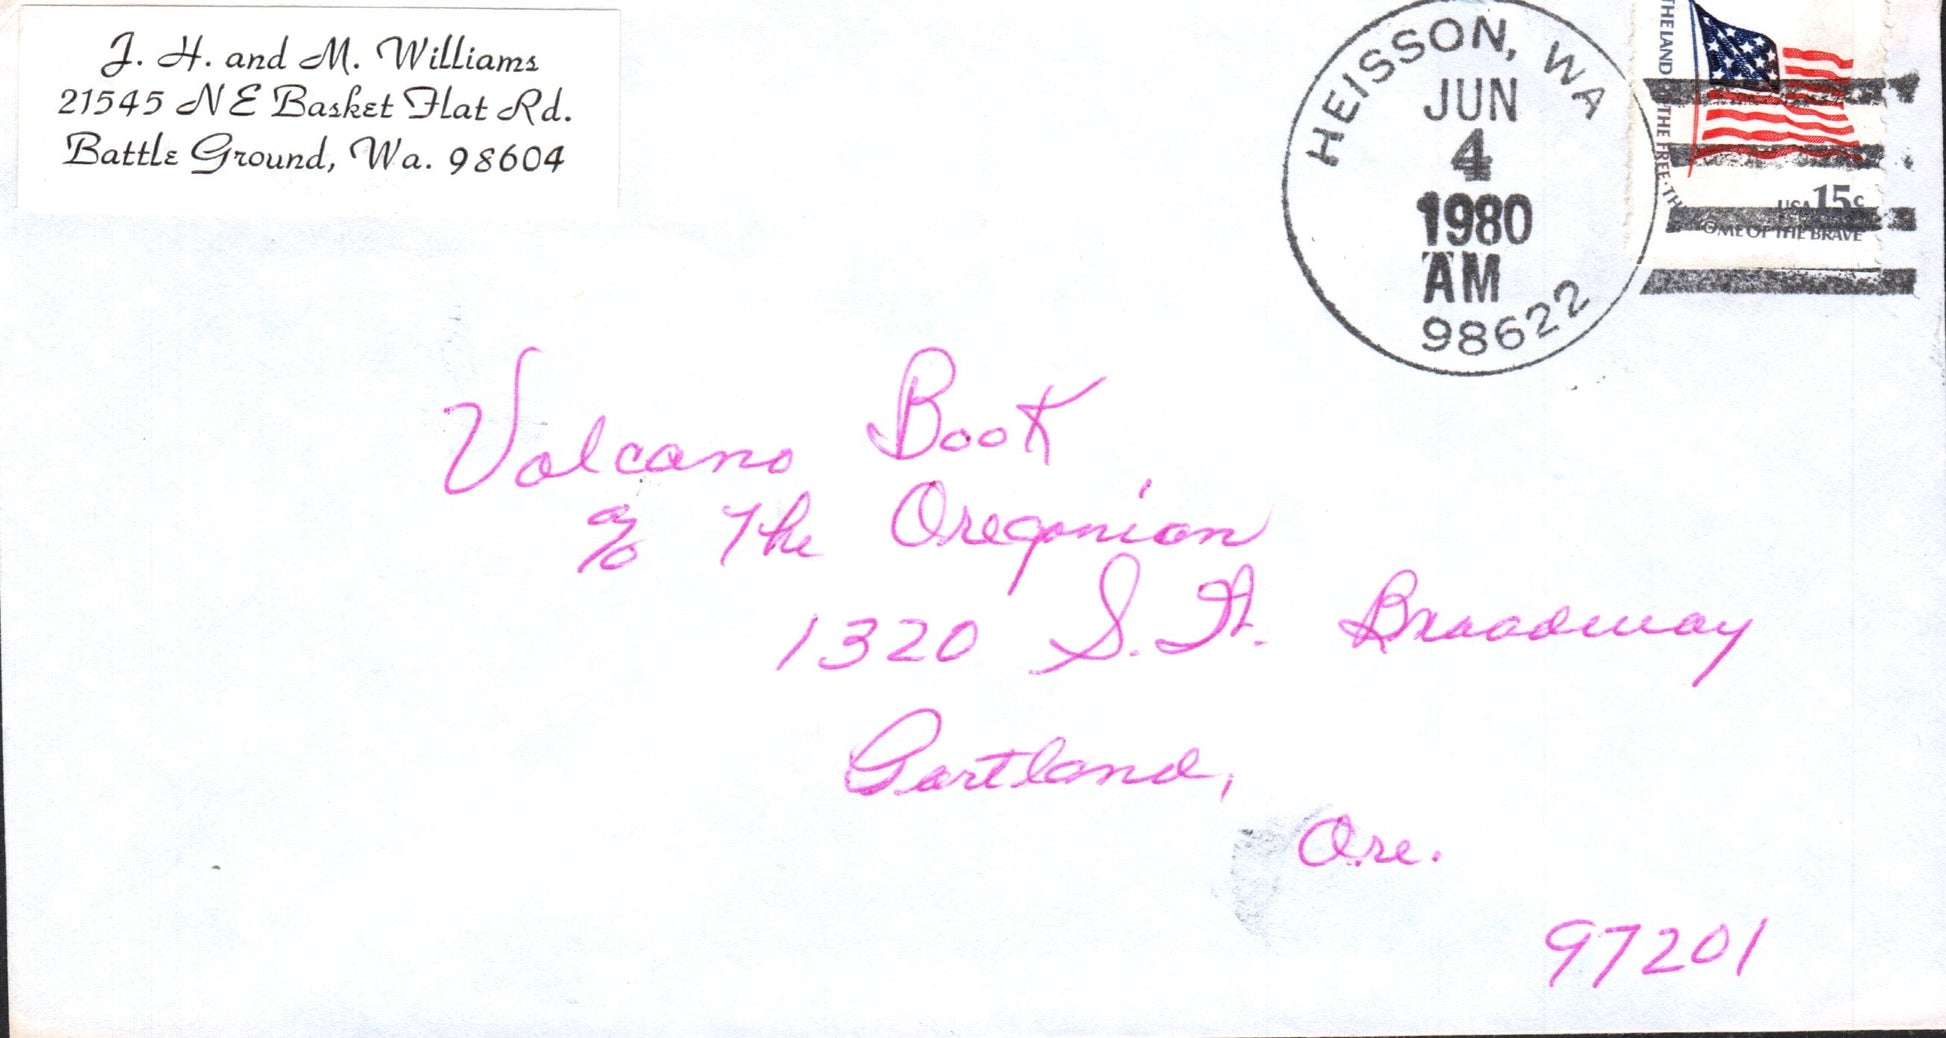 J. H. and M. Williams
21545 NE Basket Flat Rd.
Battle Ground, Wa. 98604
HEISSON, WA
JUN
4
1980
AM
98622
THE LAND OF THE FREE · THE HOME OF THE BRAVE
USA 15c
Volcano Book
% The Oregonian
1320 S.W. Broadway
Portland,
Ore.
97201